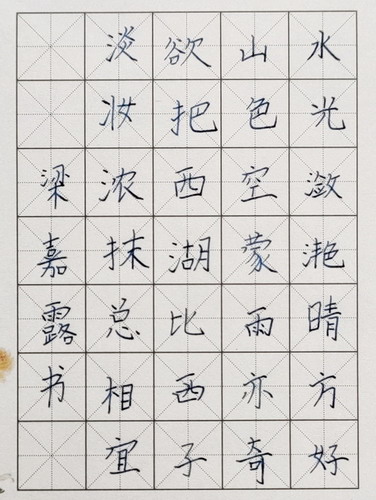 水光潋滟晴方好
山色空蒙雨亦奇
欲把西湖比西子
淡妆浓抹总相宜
梁嘉露书